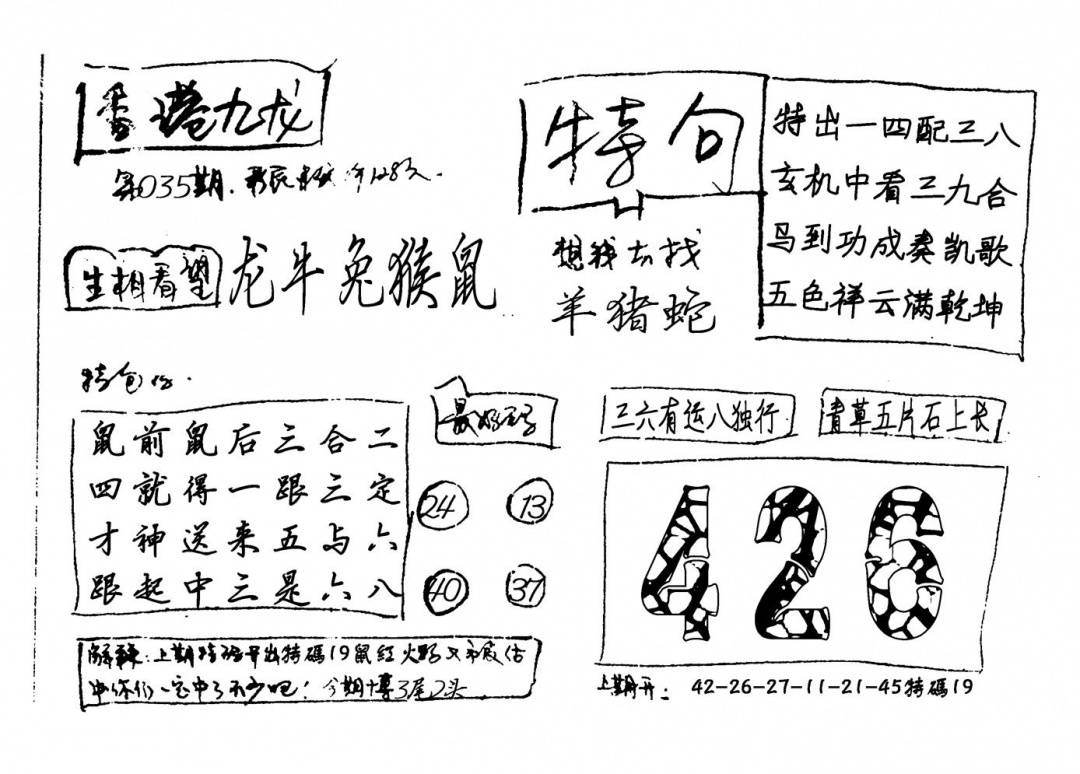 香港九龙
第035期
特句
特出一四配三八
玄机中看三九合
马到功成奏凯歌
五色祥云满乾坤
生相看望
龙牛兔猴鼠
想我去找
羊猪蛇
特包
鼠前鼠后三合二
四就得一跟三定
才神送来五与六
跟起中三是六八
24 13
40 37
三六有运八独行
清草五片石上长
426
解释:上期特码开出特碼19鼠紅火野又
中你们一定中了不少吧!今期博3尾2头
上期开: 42-26-27-11-21-45特碼19